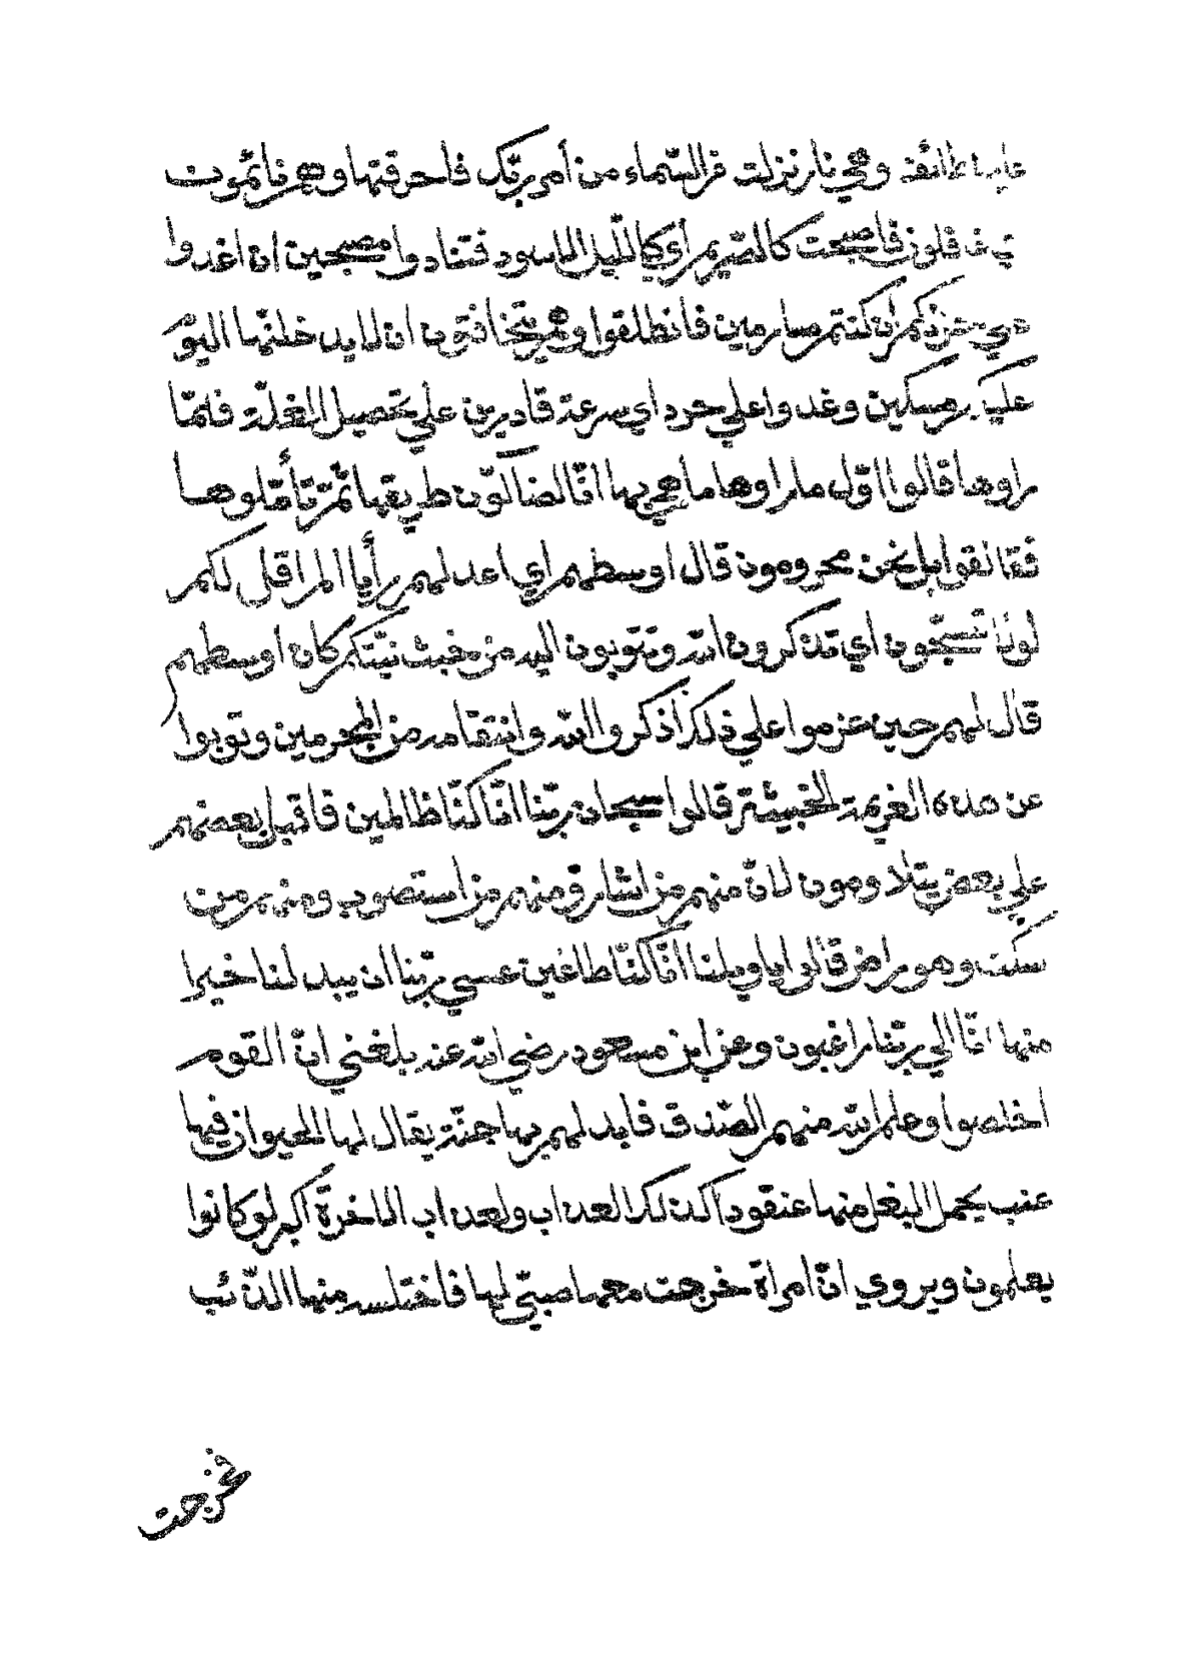 عليها طائفة وهي نار نزلت من السّماء من أمر ربّك فاحرقتها وهم نائمون
في غفلون فاصبحت كالصّريم أي كاللّيل الاسود فتنادوا مصبحين ان اغدوا
علي حرثكم إن كنتم صارمين فانطلقوا وهم يتخافتون ان لا يدخلنّها اليوم
عليكم مسكين وغدوا علي حرد اي سرعة قادرين علي تحصيل الغلّة فلمّا
راوها قالوا اوّل ما راوها ما هي بها انّا لضالّون طريقها ثمّ تأمّلوها
فقالوا بل نحن محرومون قال اوسطهم اي اعدلهم رأيا الم اقل لكم
لولا تسبّحون اي تذكرون الله وتتوبون اليه من خبث نيّتكم كان اوسطهم
قال لهم حين عزموا علي ذلك أذكروا الله وانتقامه من المجرمين وتوبوا
عن هذه العزيمة الخبيثة قالوا سبحان ربّنا انّا كنّا ظالمين فاقبل بعضهم
علي بعض يتلاومون لانّ منهم من اشار ومنهم من استصوب ومنهم من
سكت وهو راض قالوا ياويلنا انّا كنّا طاغين عسي ربّنا ان يبدلنا خيرا
منها انّا الي ربّنا راغبون وعن ابن مسعود رضي الله عنه بلغني انّ القوم
اخلصوا وعلم الله منهم الصّدق فابدلهم بها جنّة يقال لها الحيوان فيها
عنب يحمل البغل منها عنقودا كذلك العذاب ولعذاب الاخرة اكبر لو كانوا
يعلمون ويروي انّ امراة خرجت معها صبيّ لها فاختلسه منها الذّئب
فخرجت